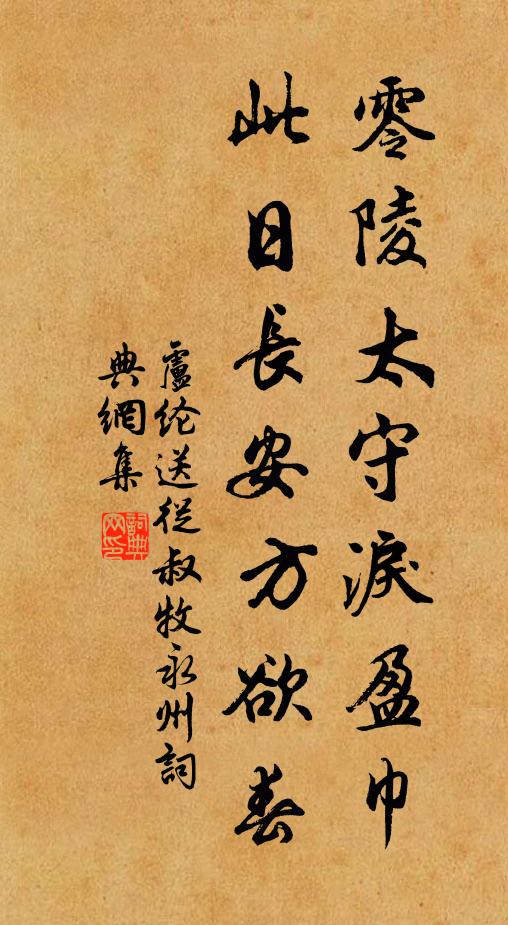 零陵太守淚盈巾
此日長安方欲春
盧纶送從叔牧永州詞
典網集
詞典网印